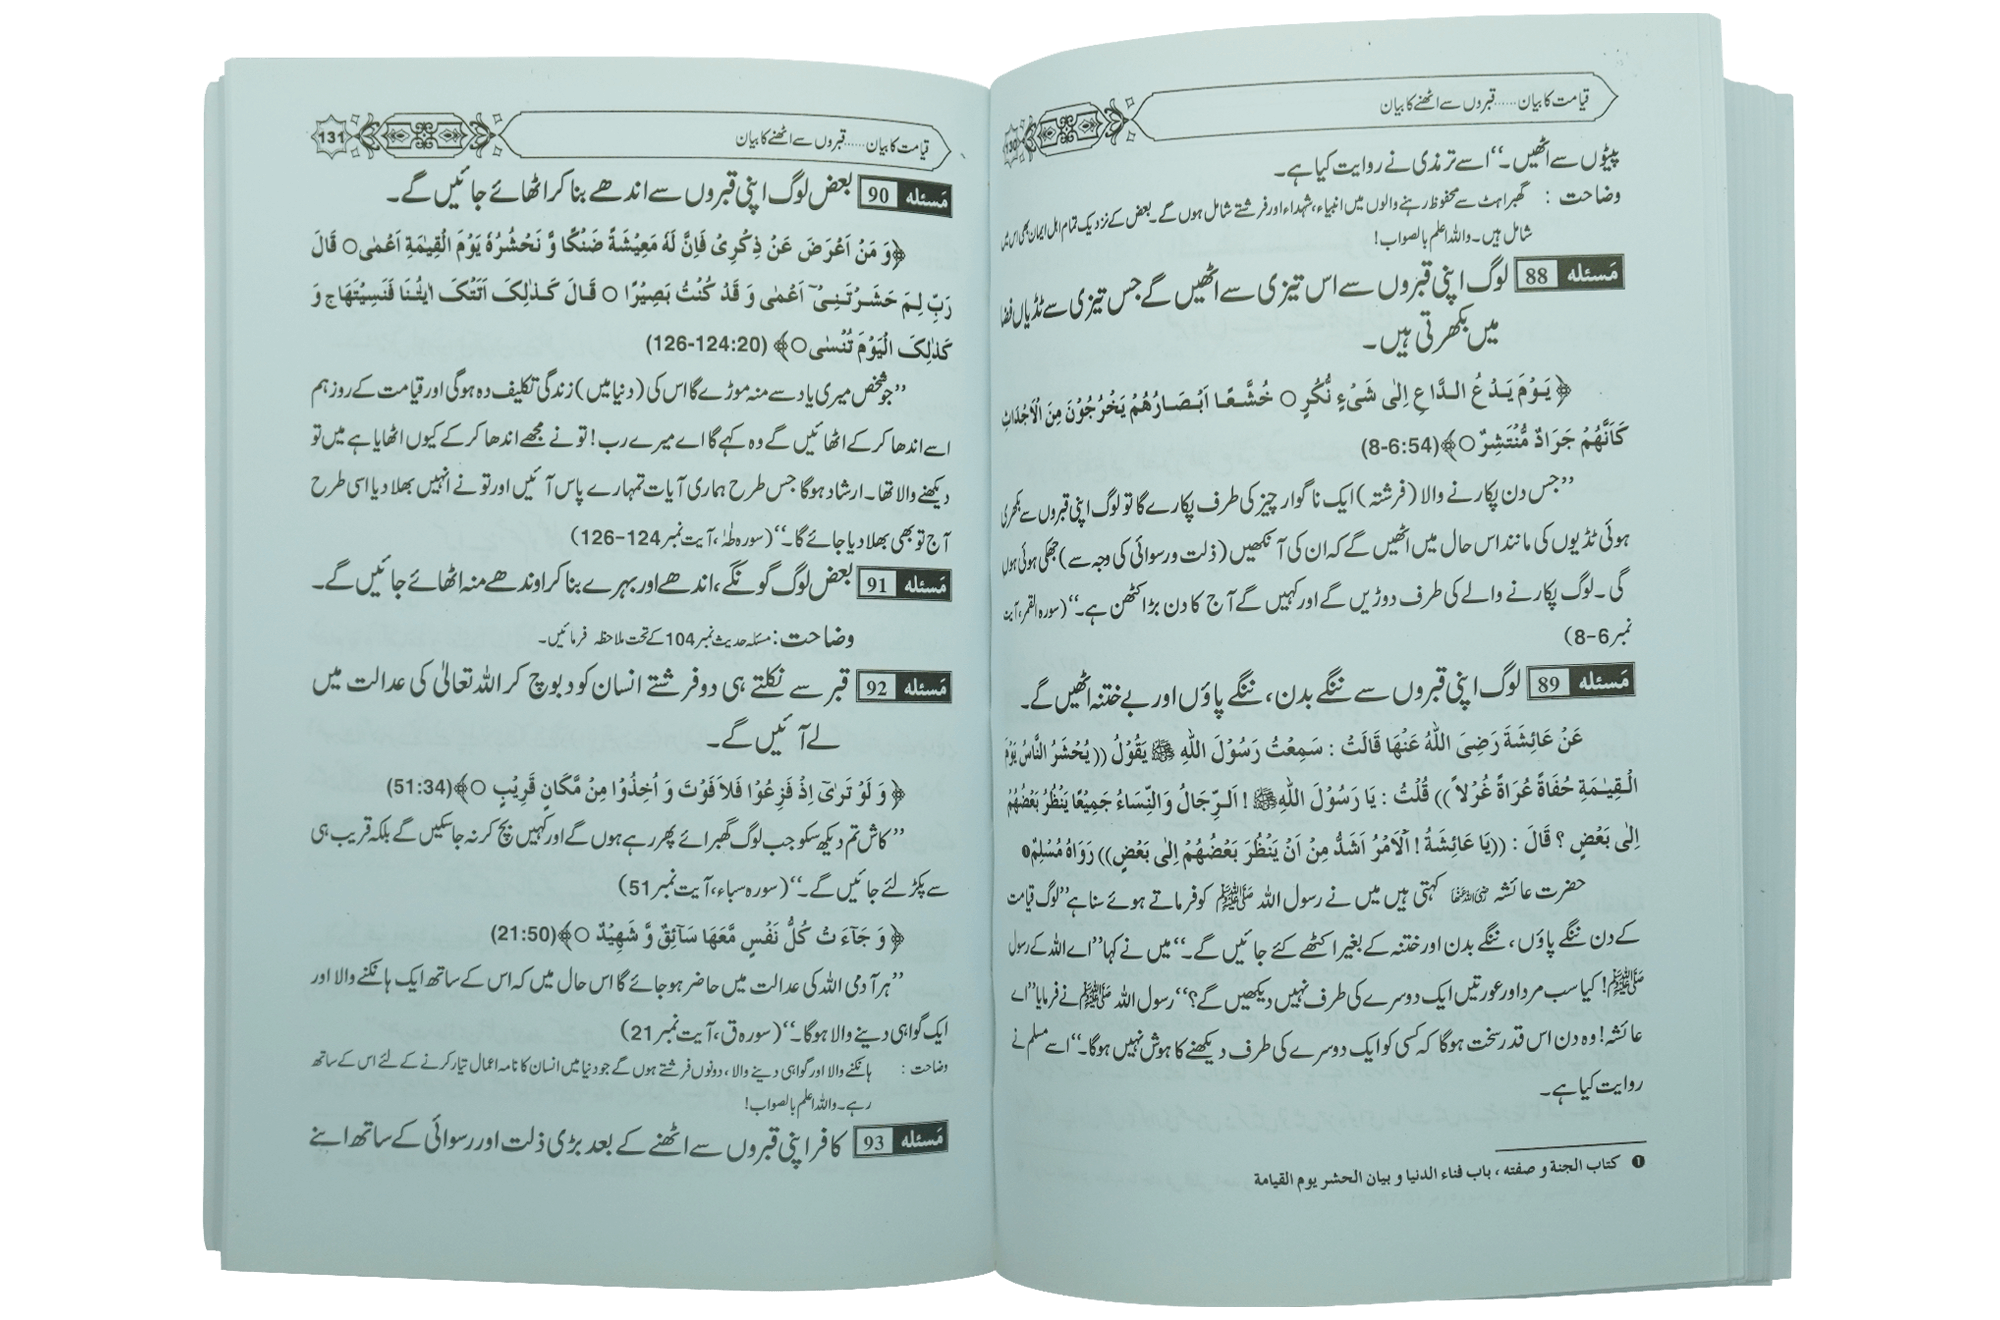 قیامت کا بیان......قبروں سے اٹھنے کا بیان
130
پیٹوں سے اٹھیں۔‘‘ اسے ترمذی نے روایت کیا ہے۔
وضاحت : گھبراہٹ سے محفوظ رہنے والوں میں انبیاء، شہداء اور فرشتے شامل ہوں گے۔ بعض کے نزدیک تمام اہل ایمان بھی اس میں
شامل ہیں۔ واللہ اعلم بالصواب!
مَسئلہ 88 لوگ اپنی قبروں سے اس تیزی سے اٹھیں گے جس تیزی سے ٹڈیاں فضا
میں بکھرتی ہیں۔
﴿ یَوْمَ یَدْعُ الدَّاعِ اِلٰی شَیْءٍ نُّکُرٍ ○ خُشَّعًا اَبْصَارُهُمْ یَخْرُجُوْنَ مِنَ الْاَجْدَاثِ
کَاَنَّهُمْ جَرَادٌ مُّنْتَشِرٌ ○﴾(54:6-8)
’’جس دن پکارنے والا (فرشتہ) ایک ناگوار چیز کی طرف پکارے گا تو لوگ اپنی قبروں سے بکھری
ہوئی ٹڈیوں کی مانند اس حال میں اٹھیں گے کہ ان کی آنکھیں (ذلت ورسوائی کی وجہ سے) جھکی ہوئی ہوں
گی۔ لوگ پکارنے والے کی طرف دوڑیں گے اور کہیں گے آج کا دن بڑا کٹھن ہے۔‘‘ (سورہ القمر، آیت
نمبر 6-8)
مَسئلہ 89 لوگ اپنی قبروں سے ننگے بدن، ننگے پاؤں اور بے ختنہ اٹھیں گے۔
عَنْ عَائِشَةَ رَضِیَ اللّٰهُ عَنْهَا قَالَتْ : سَمِعْتُ رَسُوْلَ اللّٰهِ ﷺ یَقُوْلُ (( یُحْشَرُ النَّاسُ یَوْمَ
الْقِیٰمَةِ حُفَاةً عُرَاةً غُرْلاً )) قُلْتُ : یَا رَسُوْلَ اللّٰهِ ﷺ ! اَلرِّجَالُ وَالنِّسَاءُ جَمِیْعًا یَنْظُرُ بَعْضُهُمْ
اِلٰی بَعْضٍ ؟ قَالَ : ((یَا عَائِشَةُ ! اَلْاَمْرُ اَشَدُّ مِنْ اَنْ یَنْظُرَ بَعْضُهُمْ اِلٰی بَعْضٍ)) رَوَاهُ مُسْلِمٌ❶
حضرت عائشہ رضی اللہ عنہا کہتی ہیں میں نے رسول اللہ ﷺ کو فرماتے ہوئے سنا ہے’’لوگ قیامت
کے دن ننگے پاؤں، ننگے بدن اور ختنہ کے بغیر اکٹھے کئے جائیں گے۔‘‘ میں نے کہا’’اے اللہ کے رسول
ﷺ! کیا سب مرد اور عورتیں ایک دوسرے کی طرف نہیں دیکھیں گے؟‘‘ رسول اللہ ﷺ نے فرمایا’’اے
عائشہ! وہ دن اس قدر سخت ہوگا کہ کسی کو ایک دوسرے کی طرف دیکھنے کا ہوش نہیں ہوگا۔‘‘ اسے مسلم نے
روایت کیا ہے۔
❶ کتاب الجنة و صفته ، باب فناء الدنیا و بیان الحشر یوم القیامة
قیامت کا بیان......قبروں سے اٹھنے کا بیان
131
مَسئلہ 90 بعض لوگ اپنی قبروں سے اندھے بنا کر اٹھائے جائیں گے۔
﴿وَ مَنْ اَعْرَضَ عَنْ ذِکْرِیْ فَاِنَّ لَهٗ مَعِیْشَةً ضَنْکًا وَّ نَحْشُرُهٗ یَوْمَ الْقِیٰمَةِ اَعْمٰی ○ قَالَ
رَبِّ لِمَ حَشَرْتَنِیْٓ اَعْمٰی وَ قَدْ کُنْتُ بَصِیْرًا ○ قَالَ کَذٰلِکَ اَتَتْکَ اٰیٰتُنَا فَنَسِیْتَهَا ج وَ
کَذٰلِکَ الْیَوْمَ تُنْسٰی ○﴾ (20:124-126)
’’جو شخص میری یاد سے منہ موڑے گا اس کی (دنیا میں) زندگی تکلیف دہ ہوگی اور قیامت کے روز ہم
اسے اندھا کر کے اٹھائیں گے وہ کہے گا اے میرے رب! تو نے مجھے اندھا کر کے کیوں اٹھایا ہے میں تو
دیکھنے والا تھا۔ ارشاد ہوگا جس طرح ہماری آیات تمہارے پاس آئیں اور تو نے انہیں بھلا دیا اسی طرح
آج تو بھی بھلا دیا جائے گا۔‘‘ (سورہ طہٰ، آیت نمبر 124-126)
مَسئلہ 91 بعض لوگ گونگے، اندھے اور بہرے بنا کر اوندھے منہ اٹھائے جائیں گے۔
وضاحت: مسئلہ حدیث نمبر 104 کے تحت ملاحظہ فرمائیں۔
مَسئلہ 92 قبر سے نکلتے ہی دو فرشتے انسان کو دبوچ کر اللہ تعالیٰ کی عدالت میں
لے آئیں گے۔
﴿ وَ لَوْ تَرٰیٓ اِذْ فَزِعُوْا فَلاَ فَوْتَ وَ اُخِذُوْا مِنْ مَّکَانٍ قَرِیْبٍ ○﴾(51:34)
’’کاش تم دیکھ سکو جب لوگ گھبرائے پھر رہے ہوں گے اور کہیں بچ کر نہ جاسکیں گے بلکہ قریب ہی
سے پکڑ لئے جائیں گے۔‘‘ (سورہ سباء، آیت نمبر 51)
﴿ وَ جَآءَتْ کُلُّ نَفْسٍ مَّعَهَا سَآئِقٌ وَّ شَهِیْدٌ ○﴾(21:50)
’’ہر آدمی اللہ کی عدالت میں حاضر ہو جائے گا اس حال میں کہ اس کے ساتھ ایک ہانکنے والا اور
ایک گواہی دینے والا ہوگا۔‘‘ (سورہ ق، آیت نمبر 21)
وضاحت : ہانکنے والا اور گواہی دینے والا، دونوں فرشتے ہوں گے جو دنیا میں انسان کا نامہ اعمال تیار کرنے کے لئے اس کے ساتھ
رہے۔ واللہ اعلم بالصواب!
مَسئلہ 93 کافر اپنی قبروں سے اٹھنے کے بعد بڑی ذلت اور رسوائی کے ساتھ اپنے